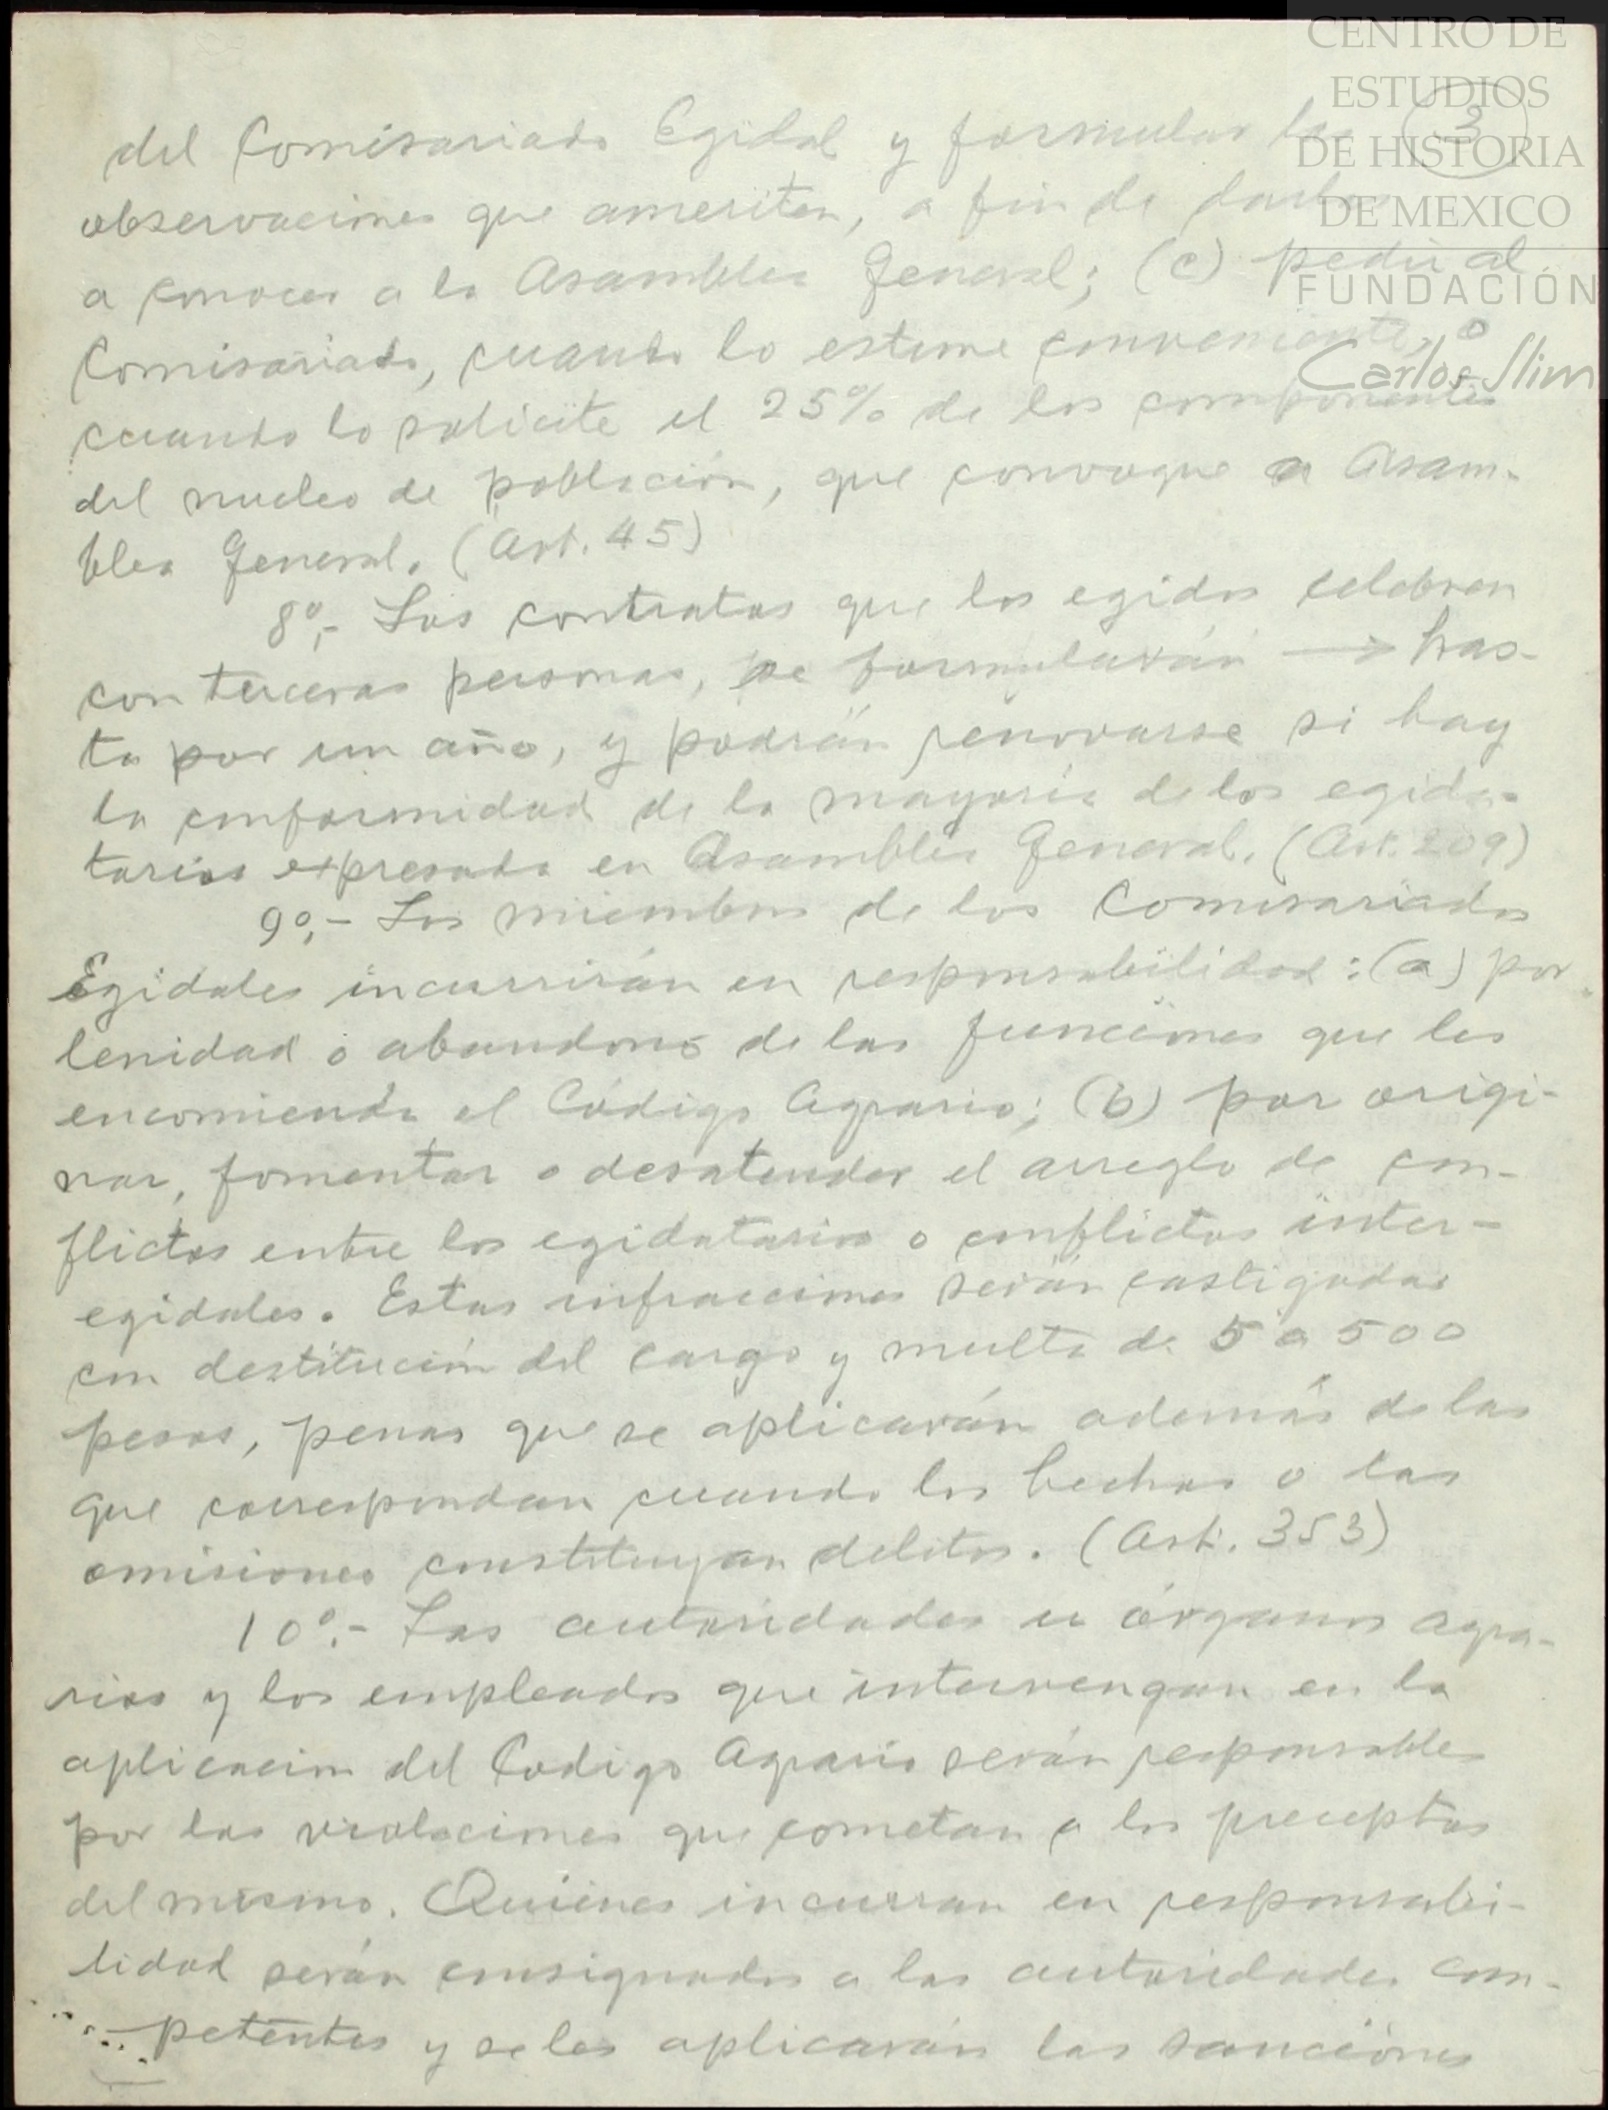 CENTRO DE
ESTUDIOS
DE HISTORIA
DE MEXICO
FUNDACIÓN
Carlos Slim
3
del Comisariado Egidal y formular las
observaciones que ameriten, a fin de darlas
a conocer a la Asamblea General; (c) pedir al
Comisariado, cuando lo estime conveniente, o
cuando lo solicite el 25% de los componentes
del nucleo de población, que convoque a Asam-
blea General. (Art. 45)
8º,- Los contratos que los egidos celebren
con terceras personas, se formularán → has-
ta por un año, y podrán renovarse si hay
la conformidad de la mayoría de los egida-
tarios expresada en Asamblea General. (Art. 209)
9º,- Los miembros de los Comisariados
Egidales incurrirán en responsabilidad: (a) por
lenidad o abandono de las funciones que les
encomienda el Código Agrario; (b) por origi-
nar, fomentar o desatender el arreglo de con-
flictos entre los egidatarios o conflictos inter-
egidales. Estas infracciones serán castigadas
con destitución del cargo y multa de 5 a 500
pesos, penas que se aplicarán además de las
que correspondan cuando los hechos o las
omisiones constituyan delitos. (Art. 353)
10º.- Las autoridades u órganos agra-
rios y los empleados que intervengan en la
aplicacion del Codigo Agrario serán responsables
por las violaciones que cometan a los preceptos
del mismo. Quiénes incurran en responsabi-
lidad serán consignados a las autoridades com-
petentes y se les aplicarán las sanciones